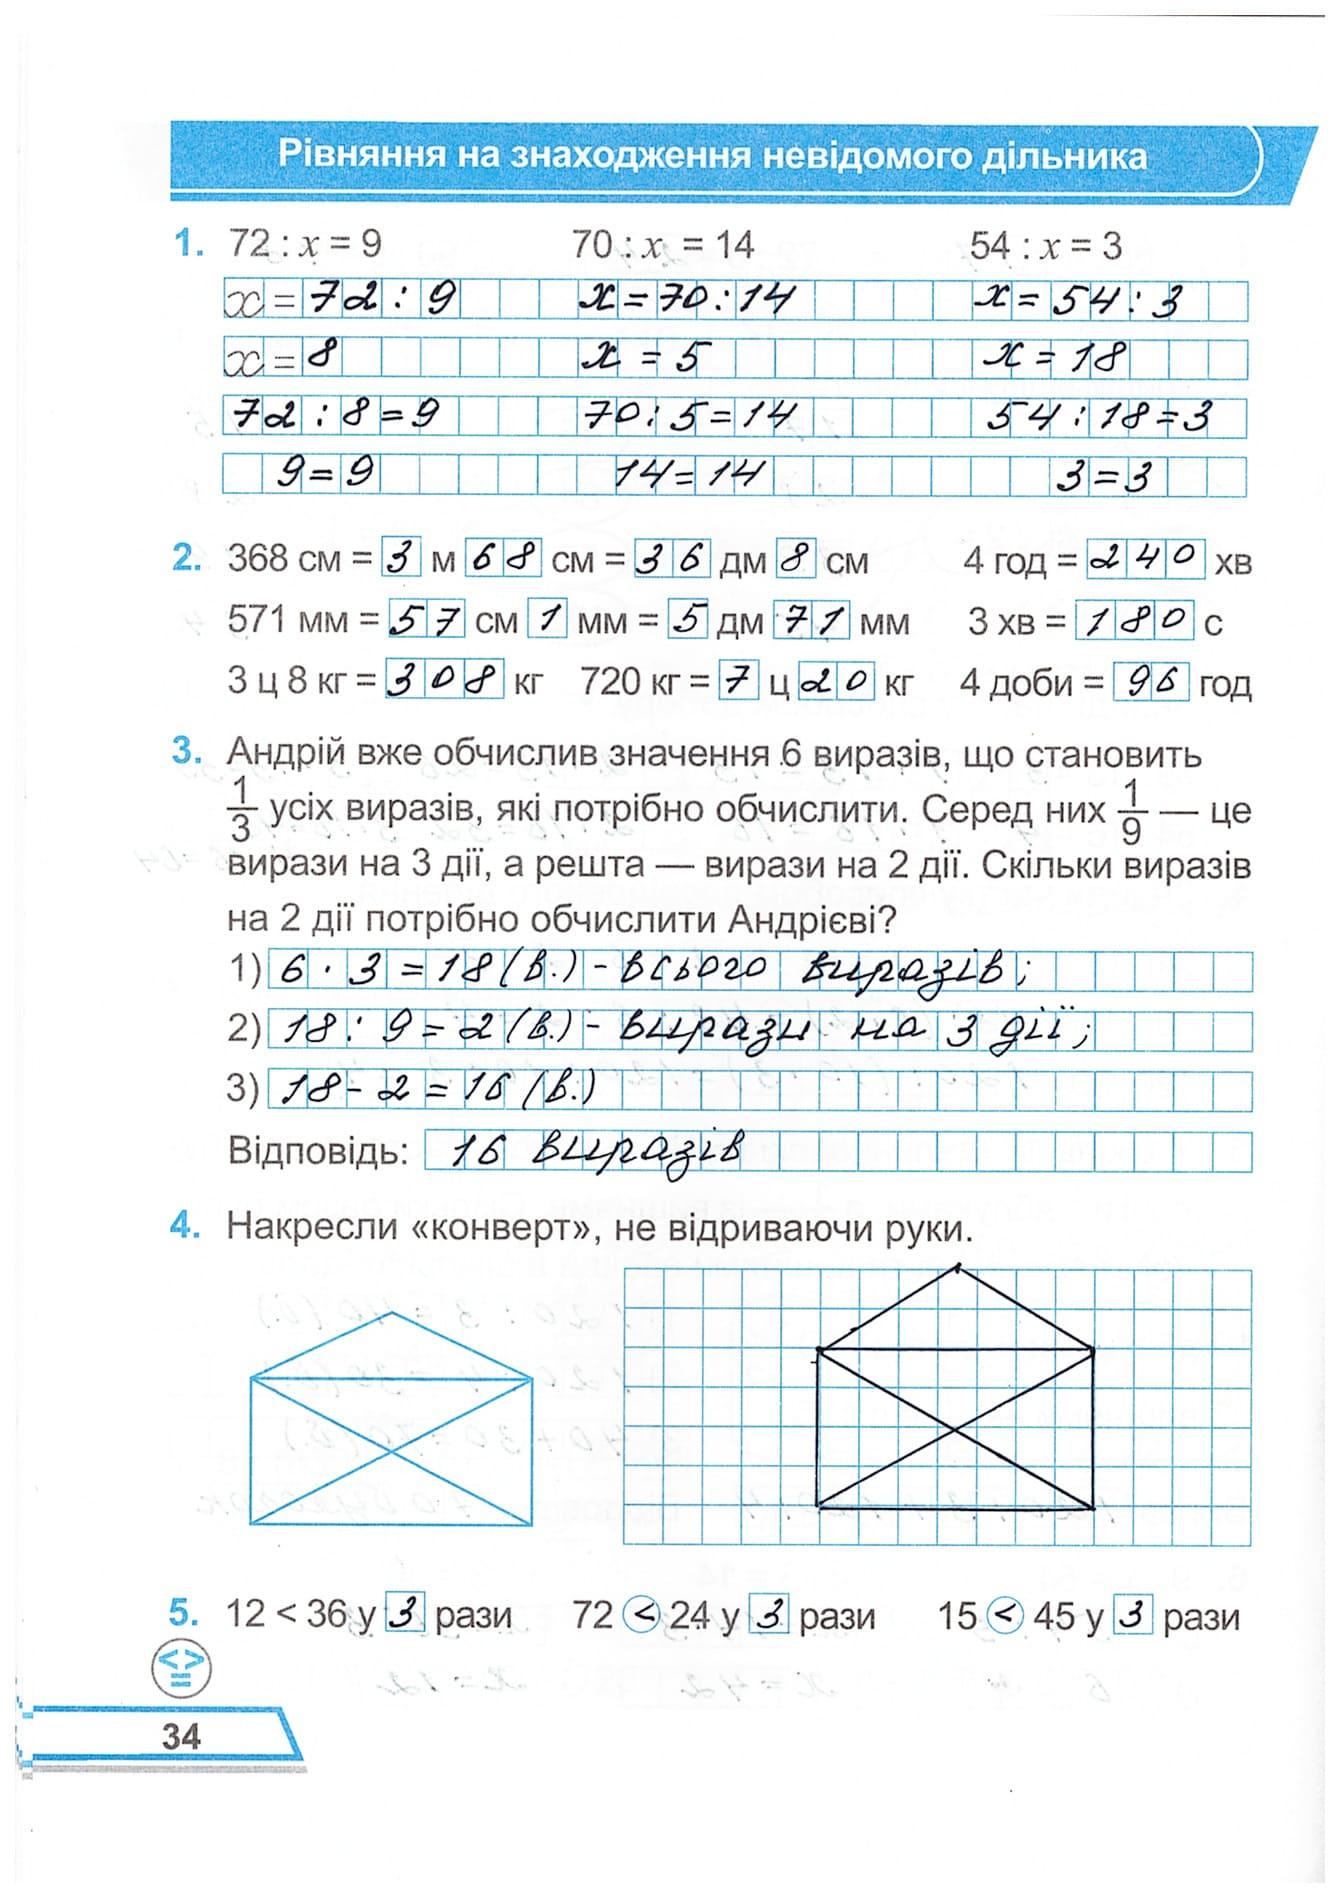 Рівняння на знаходження невідомого дільника
1. 72 : x = 9 70 : x = 14 54 : x = 3
x = 72 : 9 x = 70 : 14 x = 54 : 3
x = 8 x = 5 x = 18
72 : 8 = 9 70 : 5 = 14 54 : 18 = 3
9 = 9 14 = 14 3 = 3
2. 368 см = 3 м 68 см = 36 дм 8 см 4 год = 240 хв
571 мм = 57 см 1 мм = 5 дм 71 мм 3 хв = 180 с
3 ц 8 кг = 308 кг 720 кг = 7 ц 20 кг 4 доби = 96 год
3. Андрій вже обчислив значення 6 виразів, що становить
1/3 усіх виразів, які потрібно обчислити. Серед них 1/9 — це
вирази на 3 дії, а решта — вирази на 2 дії. Скільки виразів
на 2 дії потрібно обчислити Андрієві?
1) 6 · 3 = 18 (в.) - всього виразів;
2) 18 : 9 = 2 (в.) - вирази на 3 дії;
3) 18 - 2 = 16 (в.)
Відповідь: 16 виразів
4. Накресли «конверт», не відриваючи руки.
5. 12 < 36 у 3 рази 72 < 24 у 3 рази 15 < 45 у 3 рази
<> =
34